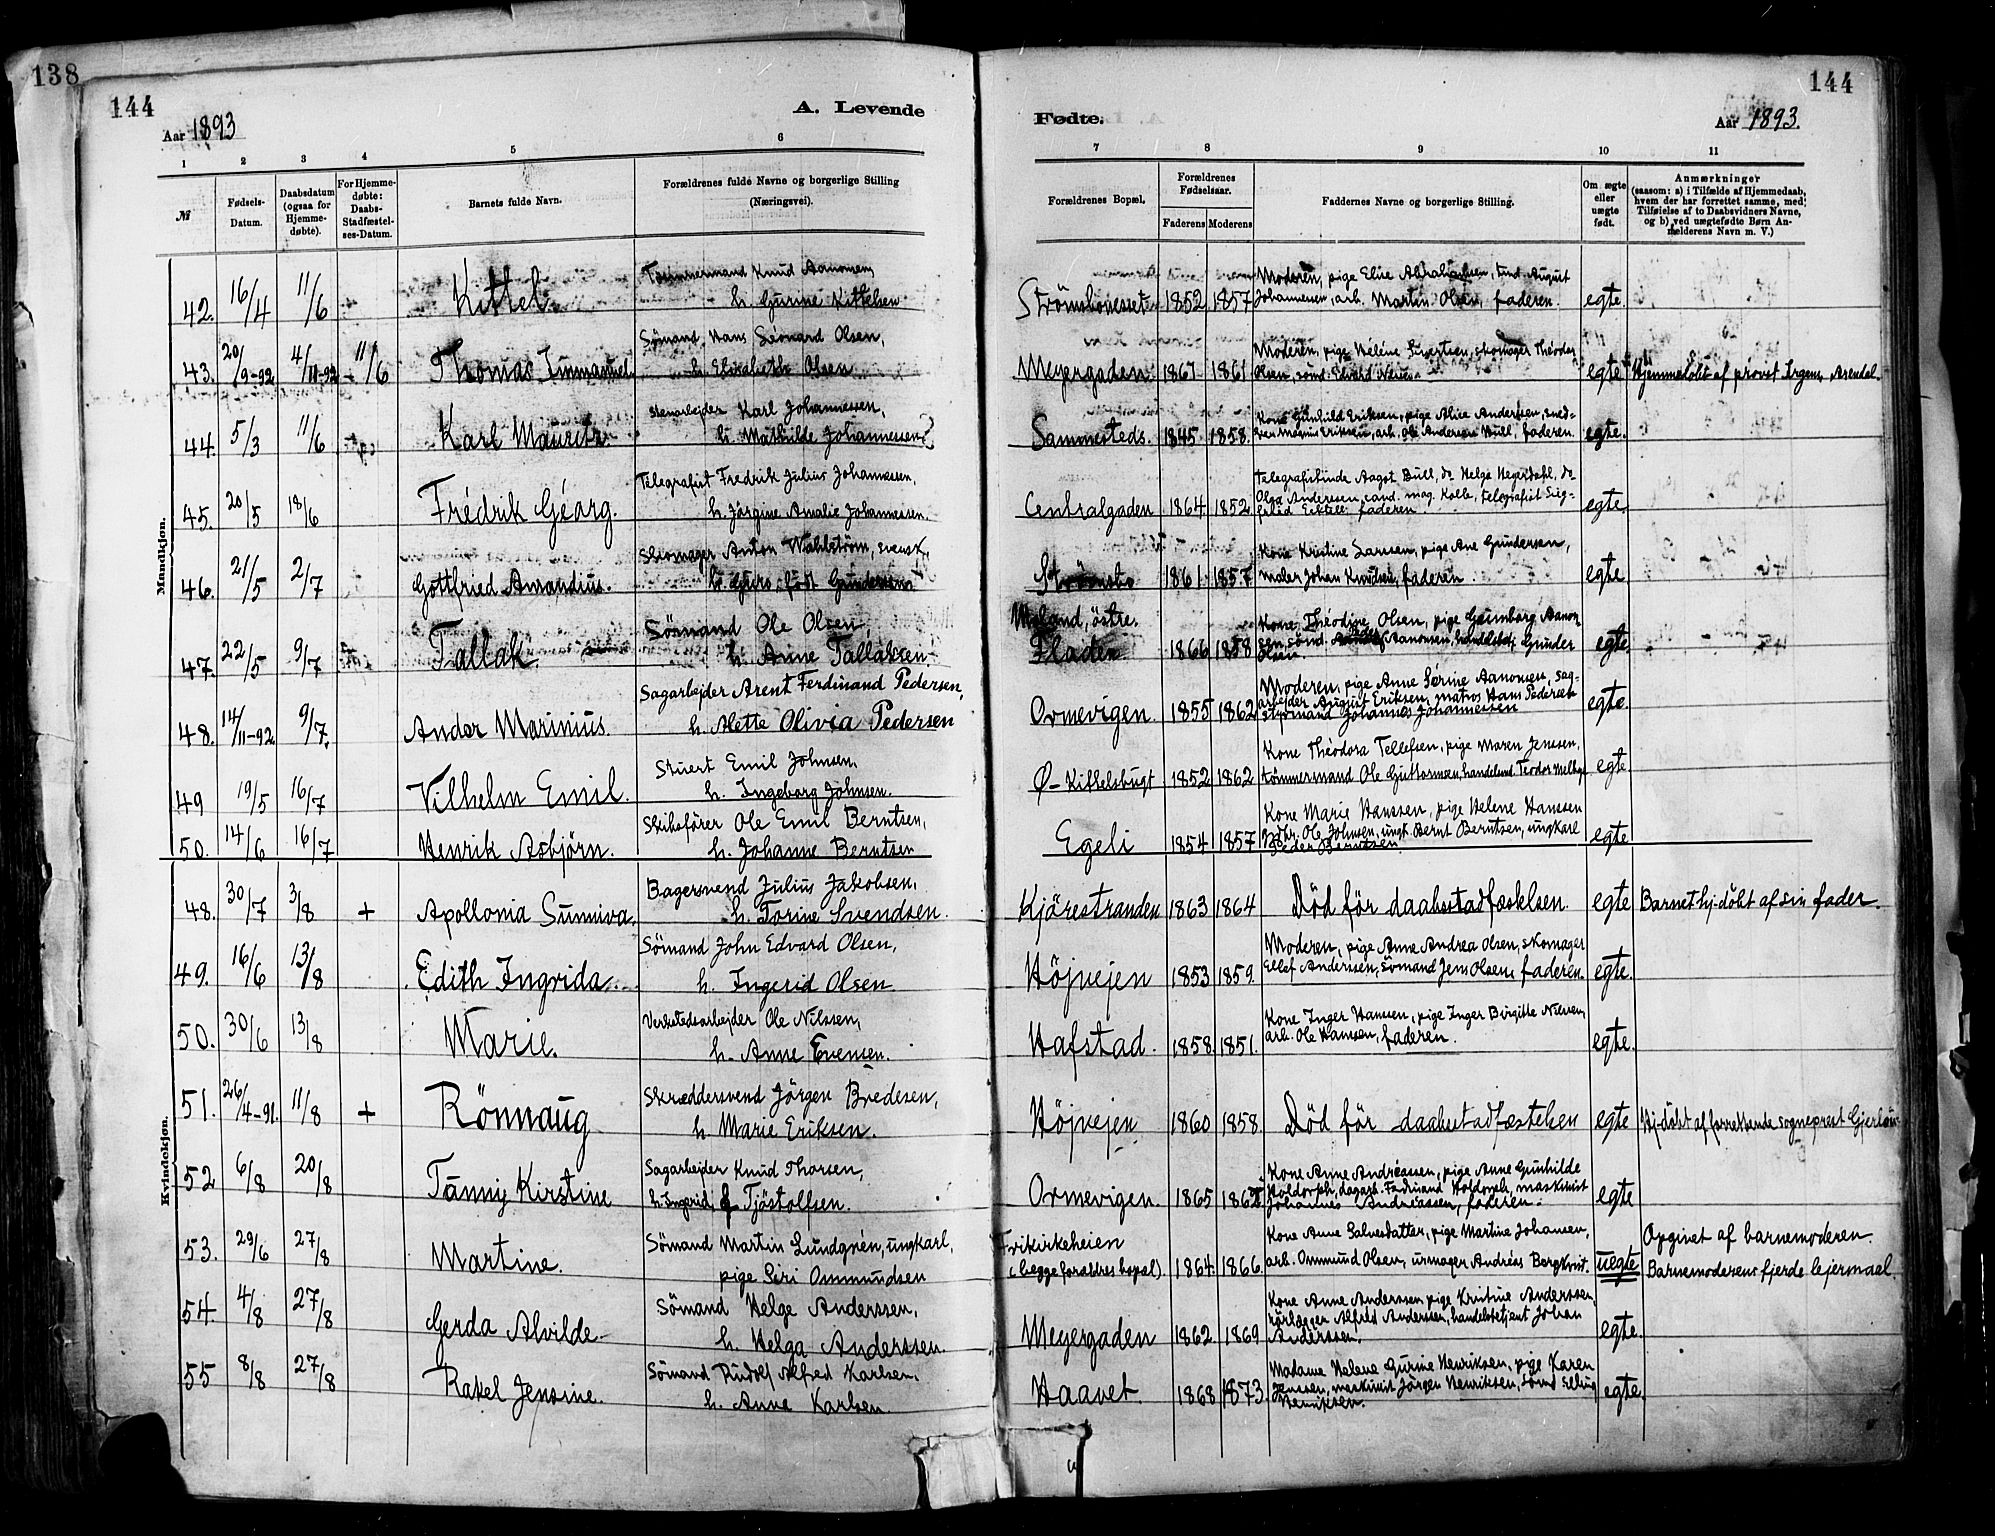 138
144
144
A. Levende
Fødte.
Aar 1893
Aar 1893.
1 2 3 4 5 6 7 8 9 10 11
№
Fødsels-Datum.
Daabsdatum (ogsaa for Hjemme-døbte).
For Hjemme-døbte: Daabs-Stadfæstel-ses-Datum.
Barnets fulde Navn.
Forældrenes fulde Navne og borgerlige Stilling
(Næringsvei).
Forældrenes Bopæl.
Forældrenes Fødselsaar.
Faderens Moderens
Faddernes Navne og borgerlige Stilling.
Om ægte eller uægte født.
Anmærkninger
(saasom: a) i Tilfælde af Hjemmedaab,
hvem der har forrettet samme, med
Tilføielse af to Daabsvidners Navne,
og b) ved uægtefødte Børn An-
mælderens Navn m. V.)
Mandkjøn.
42. 16/4 11/6 Kittel Tømmermand Knud Aanonsen,
h. Gurine Kittelsen
Strömsbouesset 1852 1857 Moderen, pige Elise Abrahamsen, August
Johannessen, arb. Martin Olsen, faderen. egte.
43. 20/9-92 4/11-92 11/6 Thomas Immanuel Sömand Hans Léonard Olsen,
h. Elisabeth Olsen
Meyergaden 1867 1861 Moderen, pige Héléne skomager Théodor
Olsen, sömd. Edvard egte Hjemmedöbt af provst Irgens, Arendal.
44. 5/3 11/6 Karl Mauritz Stenarbejder Karl Johannessen,
h. Mathilde Johannessen
Sammesteds. 1845 1858. Kone Gunhild Eriksen, pige Alice Anderssen, sned-
ker Magnus Eriksen, arb. Ole Andersen Hull, faderen. egte.
45. 20/5 18/6 Frédrik Géorg. Telegrafist Fredrik Julius Johannessen,
h. Jörgine Amalie Johannessen.
Centralgaden 1864 1852 Telegrafistinde Aagot Bull, do Helga Hegerdahl, do
Olga Andersen, cand. mag. Kolle, telegrafist Sieg-
fried faderen egte.
46. 21/5 2/7 Gottfried Amandius. Skomager Anton Wahlström, svensk,
h. Guro, födt Gundersen
Strömsbo 1861 1857 Kone Kristine Larssen, pige Ane Gundersen,
maler Johan Knudsen, faderen egte
47. 22/5 9/7 Tallak Sömand Ole Olsen
h. Anne Tallaksen
Moland, östre.
Fladen. 1866 1858 Kone Théodine Olsen, pige Gunborg Aanon
sen, sömd. Aanonsen, handelsbetj. Gunder
Olsen egte.
48. 14/11-92 9/7. Ander Marinius. Sagarbejder Arent Ferdinand Pedersen,
h. Alette Olivia Pedersen
Ormevigen. 1855 1862 Moderen, pige Anne Sörine Aanonsen, sag-
arbejder August Eriksen, matros Hans Pedersen
styrmand Johannes Johannessen egte.
49 19/5 16/7 Vilhelm Emil. Stuert Emil Johnsen,
h. Ingeborg Johnsen.
Ø-Kittelsbugt 1852 1862 Kone Théodora Tellefsen, pige Maren Jenssen,
tömmermand Ole Guttormsen, handelsmd. Teodor egte
50. 14/6 16/7 Henrik Asbjörn. Skibsförer Ole Emil Berntsen,
h. Johanne Berntsen
Egeli 1854 1857 Kone Marie Hanssen, pige Helene Hanssen
Ole Johnsen, ungk. Bernt Berntsen, ungkarl
Peder Berntsen egte
Kvindekjøn.
48. 30/7 3/8 + Apollonia Sunniva. Bagersvend Julius Jakobsen,
h. Torine Svendsen.
Kjörestranden 1863 1864 Död för daabsstadfæstelsen. egte Barnet hj-döbt af sin fader.
49. 16/6 13/8 Edith Ingrida. Sömand John Edvard Olsen,
h. Ingerid Olsen
Höjvejen 1853 1859. Moderen, pige Anne Andrea Olsen, skomager
Ellef Anderssen, sömand Jens Olsen, faderen. egte.
50. 30/6 13/8 Marie. Verkstedsarbejder Ole Nilssen,
h. Anne Evensen.
Hafstad. 1858. 1851. Kone Inger Hanssen, pige Inger Birgitte Nilssen,
arb. Ole Hanssen, faderen. egte.
51. 26/4-91. 11/8 + Rönnaug Skræddersvend Jörgen Bredesen,
h. Marie Eriksen.
Höjvejen 1860 1858. Död för daabsstadfæstelsen egte Hj-döbt af forrettende sogneprest
52 6/8 20/8 Fanny Kirstine Sagarbejder Knud Thorsen,
h. Ingerid, f. Tjöstolfsen.
Ormevigen. 1865 Kone Anne Andréassen, pige Anne Gunhilde
Holdorph, dagarb. Ferdinand Holdorph, maskinist
Johannes Andréassen, faderen. egte
53. 29/6 27/8 Martine. Sömand Martin Lundgrén, ungkarl,
pige Siri Ommundsen
Frikirkeheien
(begge foraldres bopel). 1864. 1866. Kone Anne Salvesdatter, pige Martine Johansen,
arb. Ommund Olsen, urmager Andréas Bergkvist. uegte Opgivet af barnemoderen.
Barnemoderens fjerde lejermaal.
54. 4/8 27/8 Gerda Alvilde Sömand Helge Anderssen,
h. Helga Anderssen.
Meyergaden 1862. 1869. Kone Anne Anderssen, pige Kristine Anderssen,
rörlægger Alfred Anderssen, handelsbetjent Johan
Anderssen. egte.
55 8/8 27/8 Rakel Jensine. Sömand Rudolf Alfred Karlsen,
h. Anna Karlsen.
Haavet. 1868 1873. Madame Helene Gurine Henriksen, pige Karen
Jenssen, maskinist Jörgen Henriksen, sömd Elling
Henriksen. egte.